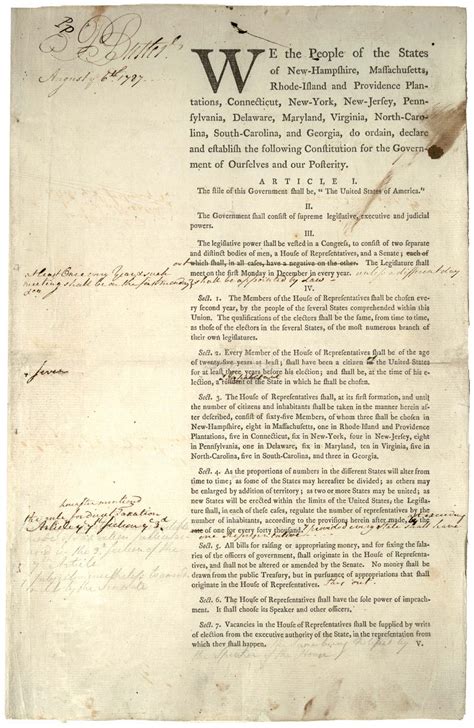 P Butler
August 6th 1787
WE the People of the States
of New-Hampſhire, Maſſachuſetts,
Rhode-Iſland and Providence Plan-
tations, Connecticut, New-York, New-Jerſey, Penn-
ſylvania, Delaware, Maryland, Virginia, North-Caro-
lina, South-Carolina, and Georgia, do ordain, declare
and eſtabliſh the following Conſtitution for the Govern-
ment of Ourſelves and our Poſterity.
ARTICLE I.
The ſtile of this Government ſhall be, “The United States of America.”
II.
The Government ſhall conſiſt of ſupreme legiſlative, executive and judicial
powers.
III.
The legiſlative power ſhall be veſted in a Congreſs, to conſiſt of two ſeparate
and diſtinct bodies of men, a Houſe of Repreſentatives, and a Senate; each of
which ſhall, in all caſes, have a negative on the other. The Legiſlature ſhall
meet on the firſt Monday in December in every year. until a different day
shall be appointed by law
at least Once every Year & such
meeting shall be on the first monday
IV.
Sect. 1. The Members of the Houſe of Repreſentatives ſhall be choſen every
ſecond year, by the people of the ſeveral States comprehended within this
Union. The qualifications of the electors ſhall be the ſame, from time to time,
as thoſe of the electors in the ſeveral States, of the moſt numerous branch of
their own legiſlatures.
Sect. 2. Every Member of the Houſe of Repreſentatives ſhall be of the age
of twenty-five years at leaſt; ſhall have been a citizen of the United States
for at leaſt three years before his election; and ſhall be, at the time of his e-
lection, a reſident of the State in which he ſhall be choſen.
seven
Sect. 3. The Houſe of Repreſentatives ſhall, at its firſt formation, and until
the number of citizens and inhabitants ſhall be taken in the manner herein af-
ter deſcribed, conſiſt of ſixty-five Members, of whom three ſhall be choſen in
New-Hampſhire, eight in Maſſachuſetts, one in Rhode-Iſland and Providence
Plantations, five in Connecticut, ſix in New-York, four in New-Jerſey, eight
in Pennſylvania, one in Delaware, ſix in Maryland, ten in Virginia, five in
North-Carolina, five in South-Carolina, and three in Georgia.
Sect. 4. As the proportions of numbers in the different States will alter from
time to time; as ſome of the States may hereafter be divided; as others may
be enlarged by addition of territory; as two or more States may be united; as
new States will be erected within the limits of the United States, the Legiſla-
ture ſhall, in each of theſe caſes, regulate the number of repreſentatives by the
number of inhabitants, according to the proviſions herein after made, by the
rate of one for every forty thouſand.
hereafter mentioned
Sect. 5. All bills for raiſing or appropriating money, and for fixing the ſala-
ries of the officers of government, ſhall originate in the Houſe of Repreſenta-
tives, and ſhall not be altered or amended by the Senate. No money ſhall be
drawn from the public Treaſury, but in purſuance of appropriations that ſhall
originate in the Houſe of Repreſentatives.
Sect. 6. The Houſe of Repreſentatives ſhall have the ſole power of impeach-
ment. It ſhall chooſe its Speaker and other officers.
Sect. 7. Vacancies in the Houſe of Repreſentatives ſhall be ſupplied by writs
of election from the executive authority of the State, in the repreſentation from
which they ſhall happen.
V.